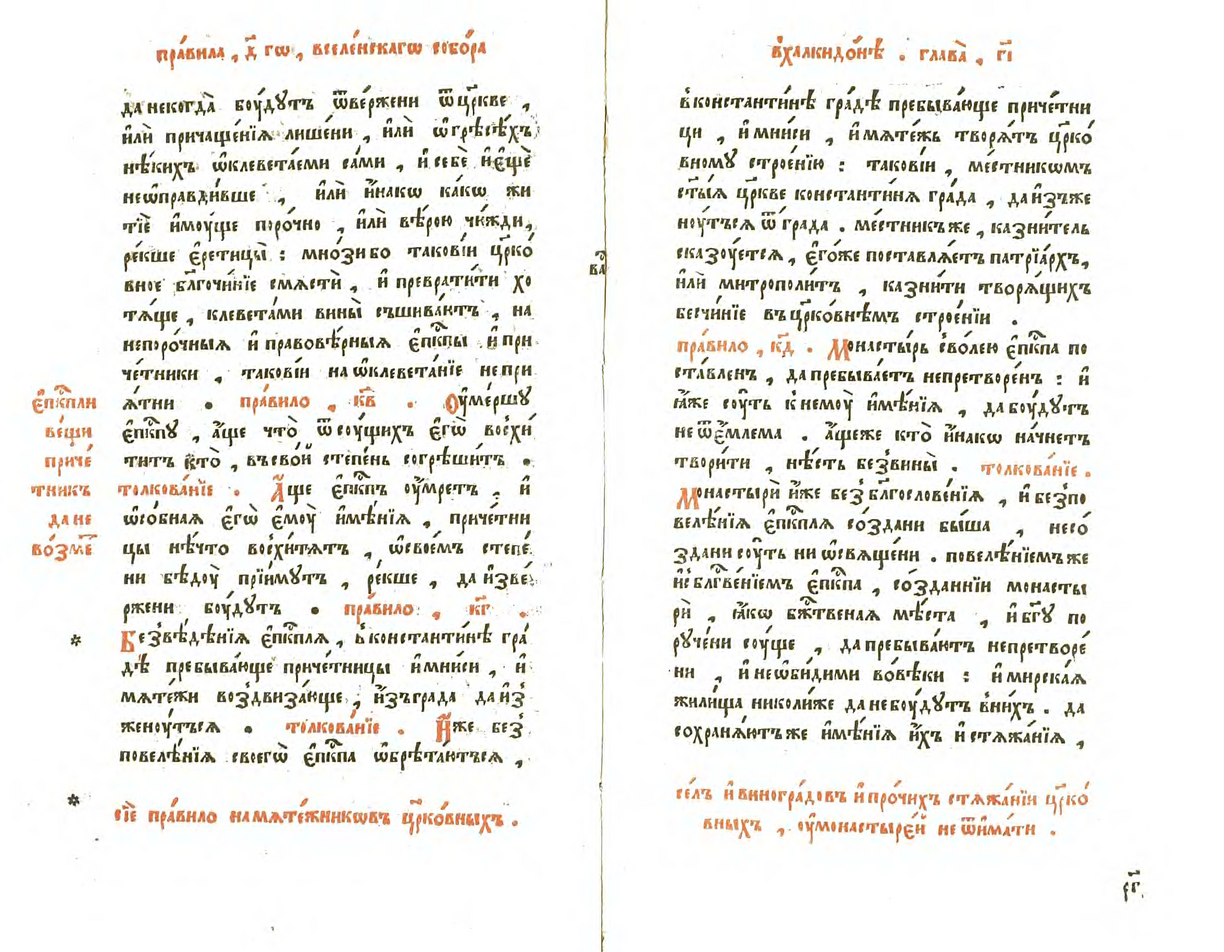 пра́вила , д҃ гѡ , вселе́нскагѡ собо́ра
да некогда̀ бꙋ́дꙋтъ ѿве́ржени ѿ цр҃кве ,
и҆лѝ причаще́нїѧ лише́ни , и҆лѝ ѡ҆ грѣсѣ́хъ
нѣ́кихъ ѡ҆клевета́еми са́ми , и҆ себѐ и҆ є҆щѐ
не ѡ҆правди́вше , и҆лѝ и҆на́кѡ ка́кѡ жи
тїѐ и҆мꙋ́ще поро́чно , и҆лѝ вѣ́рою чю́жди ,
ре́кше є҆ретицы̀ : мно́зи бо такові́и цр҃ко́
вное бл҃гочи́нїе смѧстѝ , и҆ преврати́ти хо
тѧ́ще , клевета́ми вины̀ съшива́ютъ , на
непоро́чныѧ и҆ правовѣ́рныѧ є҆пⷭ҇кпы и҆ при
че́тники , такові́и на ѡ҆клевета́нїе не при
ѧ́тни . пра́вило , к҃в . Оу҆ме́ршꙋ
є҆пⷭ҇кпꙋ , а҆́ще что̀ ѿ сꙋ́щихъ є҆гѡ̀ восхи́
титъ кто̀ , въ сво́й степе́нь согрѣши́тъ .
толкова́нїе . А҆́ще є҆пⷭ҇кпъ ᲂу҆́мретъ , и҆
ѡ҆со́бнаѧ є҆гѡ̀ є҆мꙋ̀ и҆мѣ́нїѧ , приче́тни
цы нѣ́что восхи́тѧтъ , ѡ҆ свое́мъ степе́
ни бѣдꙋ̀ прїи́мꙋтъ , ре́кше , да и҆зве́
ржени бꙋ́дꙋтъ . пра́вило , к҃г .
Без̾ вѣ́дѣнїѧ є҆пⷭ҇кплѧ , в̾ константи́нѣ гра́
дѣ пребыва́юще приче́тницы и҆ мни́си , и҆
мѧте́жи воздвиза́юще , и҆з̾ гра́да да и҆з̾
женꙋ́тъсѧ . толкова́нїе . И҆́же без̾
повелѣ́нїѧ своегѡ̀ є҆пⷭ҇кпа ѡ҆брѣта́ютъсѧ ,
є҆пⷭ҇кпли
ве́щи
приче́
тникъ
да не
во́змеⷮ
*
*
сїѐ пра́вило на мѧте́жникѡвъ цр҃ко́вныхъ .
в̾ халкидо́нѣ . глава̀ , г҃і
в̾ константи́нѣ гра́дѣ пребыва́юще приче́тни
цы , и҆ мни́си , и҆ мѧте́жъ творѧ́тъ цр҃ко́
вномꙋ строе́нїю : такові́и , мѣ́стникѡмъ
ст҃ы́ѧ цр҃кве константи́нѧ гра́да , да и҆зъже
нꙋ́тьсѧ ѿ гра́да . мѣ́стникъ же , казни́тель
сказꙋ́етсѧ , є҆го́же поставлѧ́етъ патрїа́рхъ ,
и҆лѝ митрополи́тъ , казни́ти творѧ́щихъ
безчи́нїе въ цр҃ко́внѣмъ строе́нїи .
пра́вило , к҃д . Монасты́рь с̾ во́лею є҆пⷭ҇кпа по
ста́вленъ , да пребыва́етъ непретворе́нъ : и҆
ꙗ҆́же сꙋ́ть к̾ немꙋ̀ и҆мѣ́нїѧ , да бꙋ́дꙋтъ
не ѿе́млема . а҆́ще же кто̀ и҆на́кѡ начне́тъ
твори́ти , нѣ́сть без̾ вины̀ . толкова́нїе .
Монастырѝ и҆́же без̾ бл҃гослове́нїѧ , и҆ без̾ по
велѣ́нїѧ є҆пⷭ҇кплѧ со́здани бы́ша , не со́
здани сꙋ́ть ни ѡ҆свѧще́ни . повелѣ́нїемъ же
и҆ с̾ бл҃гве́нїемъ є҆пⷭ҇кпа , со́зданнїи монасты
рѝ , ꙗ҆́кѡ бжⷭ҇твеная мѣ́ста , и҆ бг҃ꙋ по
рꙋ́чени сꙋ́ще , да пребыва́ютъ непретворе́
ни , и҆ не ѡ҆би́дими во́вѣки : и҆ мирска́ѧ
жили́ща николи́же да не бꙋ́дꙋтъ в̾ ни́хъ . да
сохранѧ́ютъ же и҆мѣ́нїѧ и҆́хъ и҆ стѧжа́нїѧ ,
се́лъ и҆ виногра́довъ и҆ про́чихъ стѧжа́нїи цр҃ко́
вныхъ , ᲂу҆ монастыре́й не ѿима́ти .